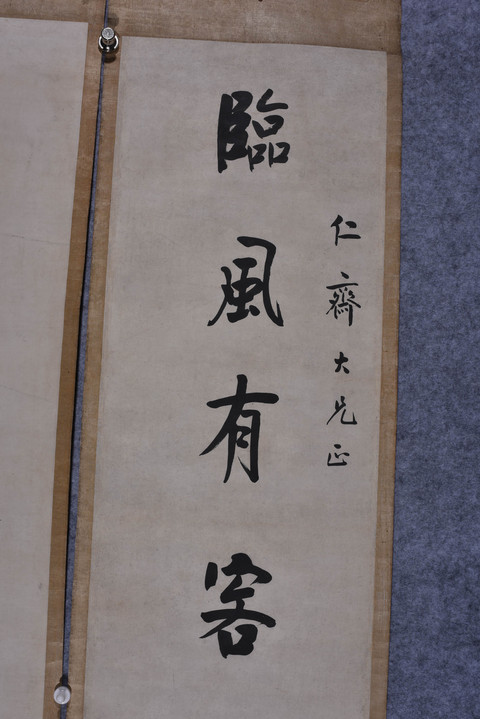 仁齋大兄正
臨風有客